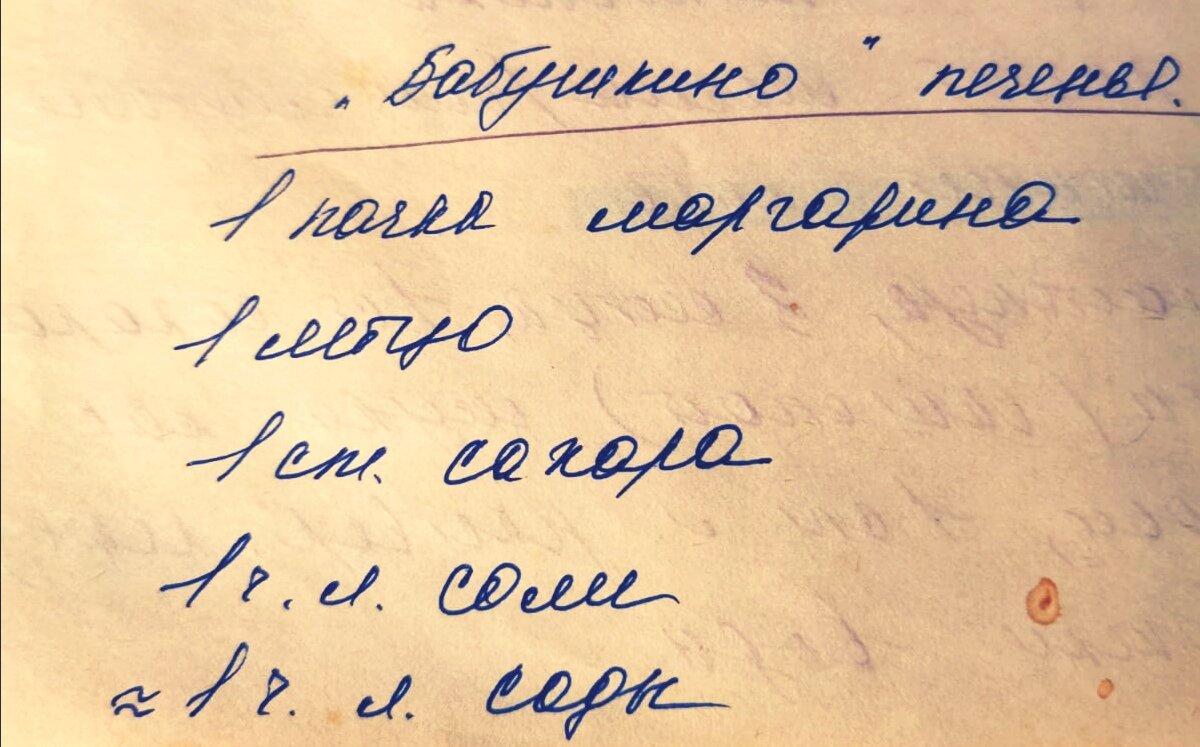 „Бабушкино" печенье.
1 пачка маргарина
1 яйцо
1 ст. сахара
1 ч. л. соли
≈ 1 ч. л. соды